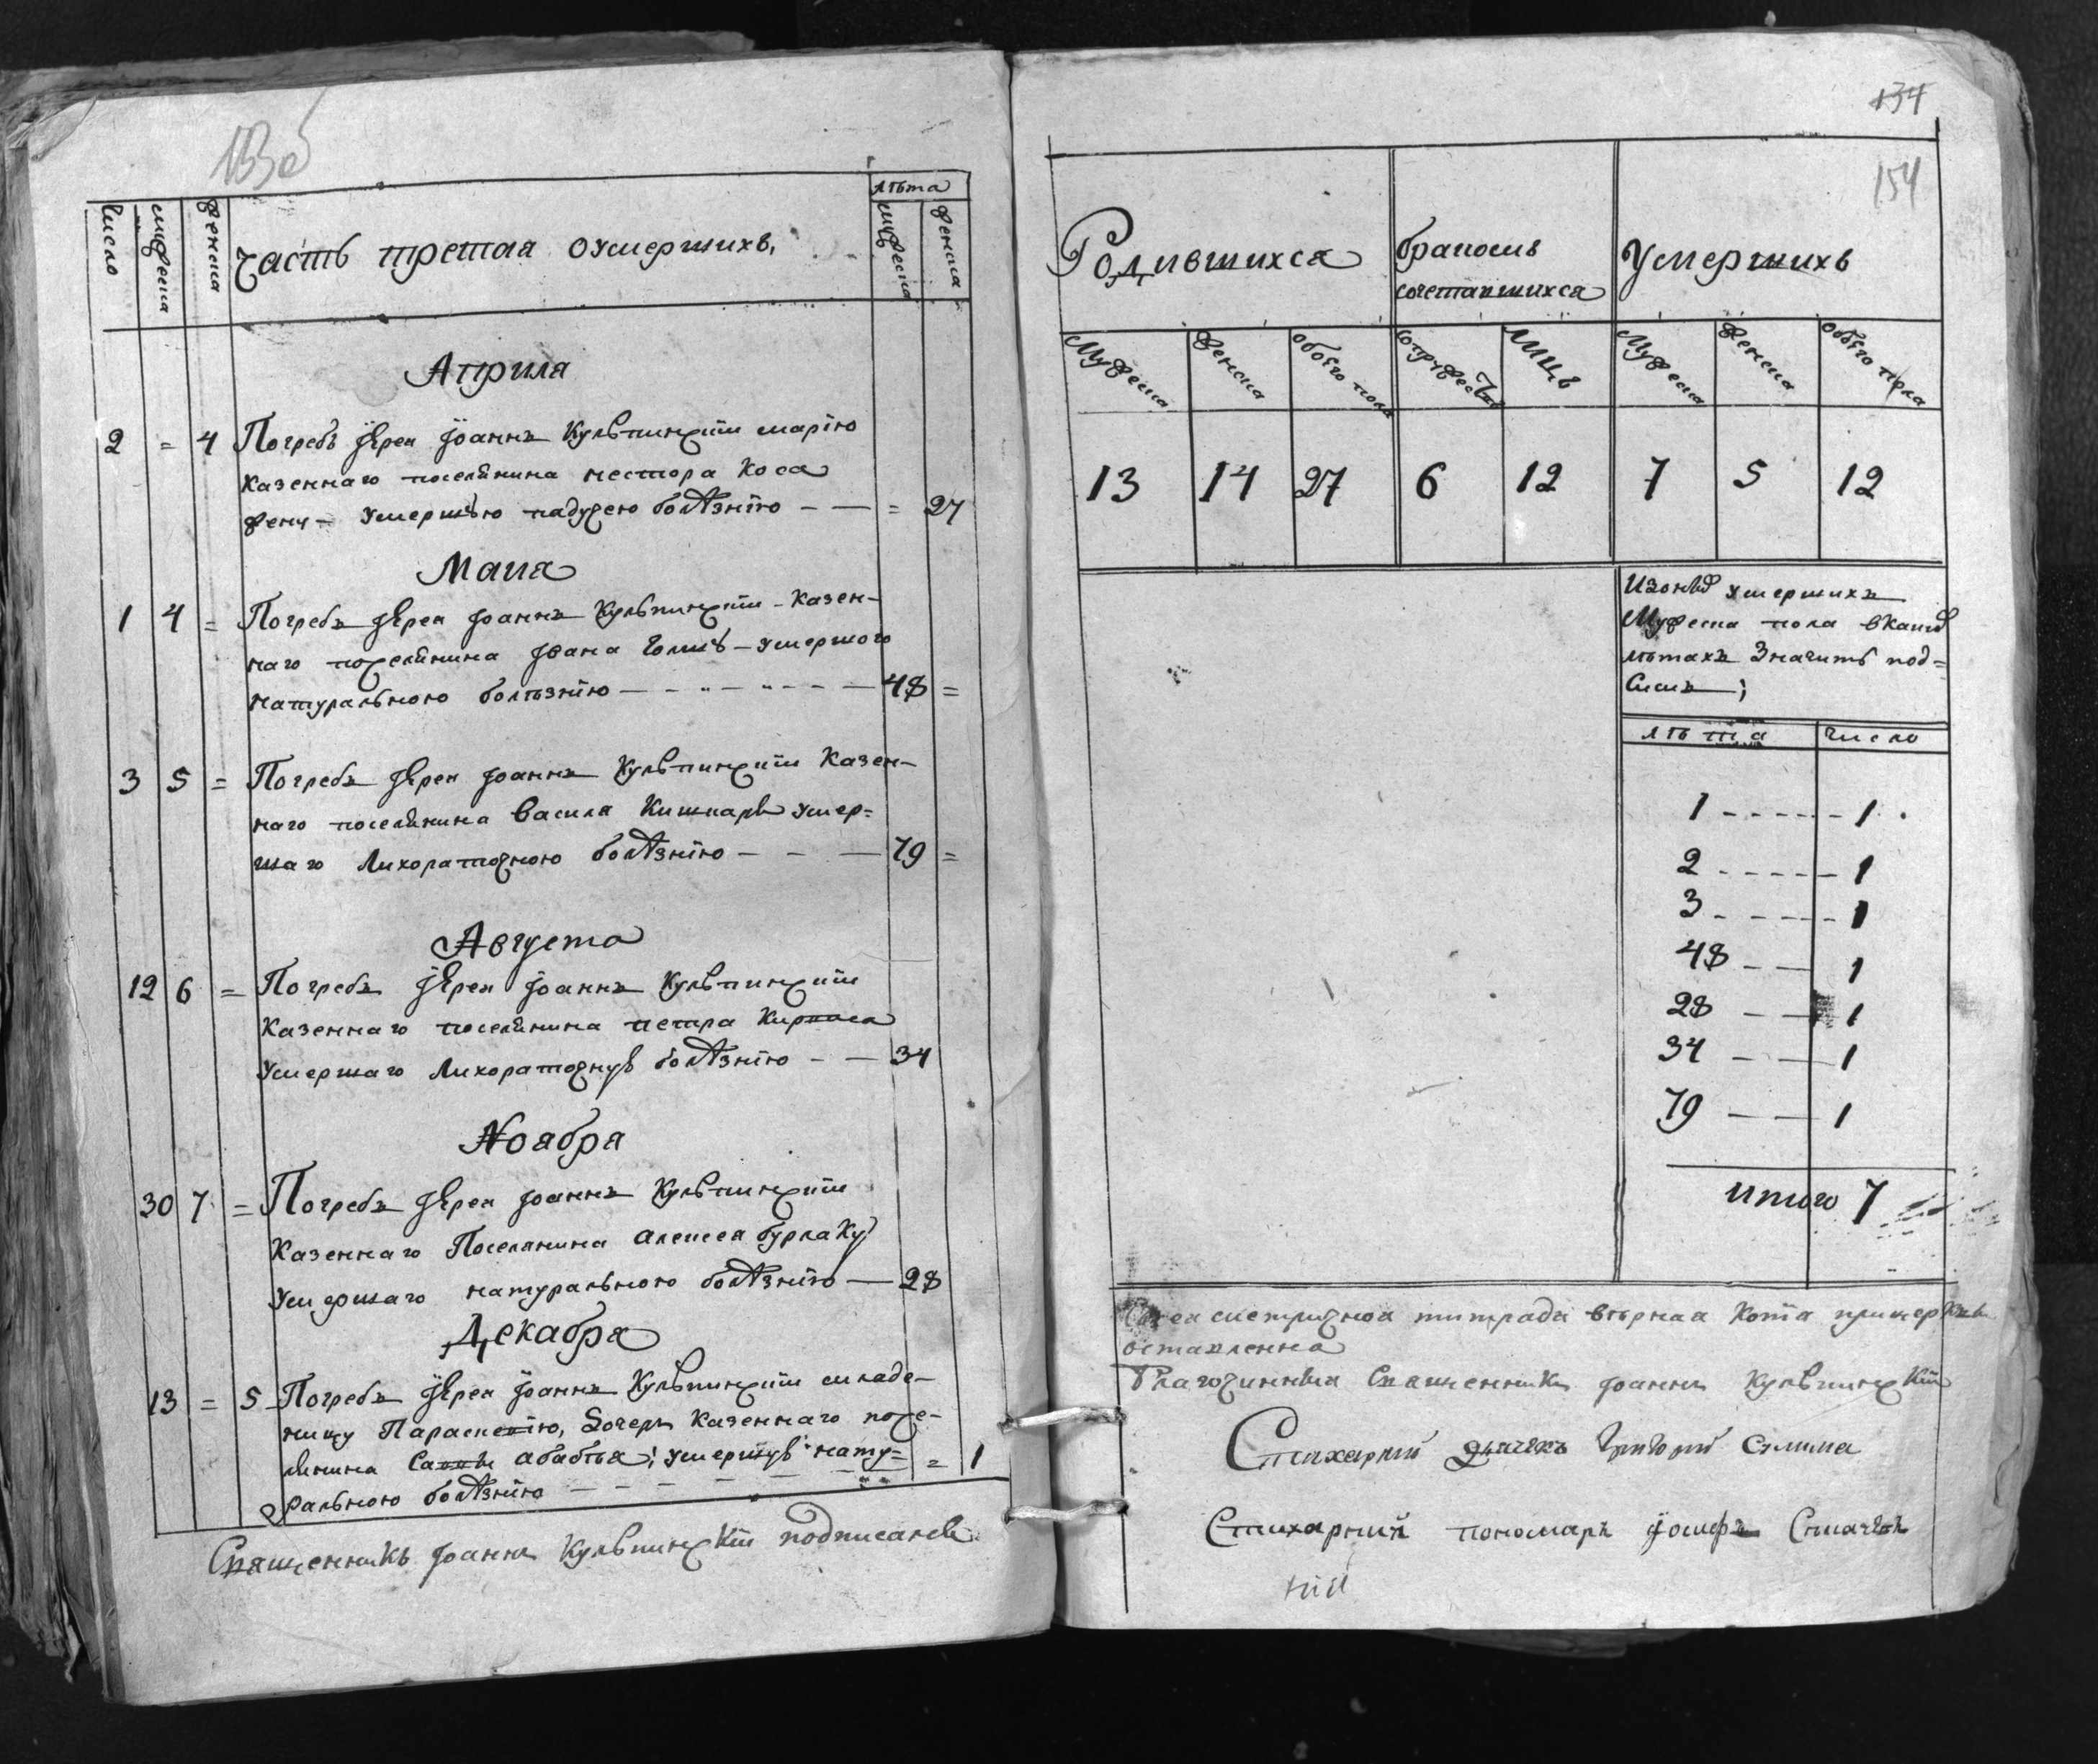 133об
лѣта
число мужеска женска Часть третая о умершихъ, мужеска женска
Априля
2 = 4 Погребъ Іерей Іоаннъ Кульчинскій марію
казеннаго поселянина нестора Коса
жену – умершую падучею болѣзнію – — = 27
Маия
1 4 = Погребъ Іерей Іоаннъ Кульчинскій – казен–
наго поселянина Іоана – умершого
натуральною болѣзнію — – – – — 48 =
3 5 = Погребъ Іерей Іоаннъ Кульчинскій казен–
наго поселянина василя Кишкаря умер=
шаго Лихораточною болѣзнію – – — 79 =
Августа
12 6 = Погребъ Іерей Іоаннъ Кульчинскій
казеннаго поселянина петра
умершаго Лихораточную болѣзнію – — 34
Ноября
30 7 = Погребъ Іерей Іоаннъ Кульчинскій
казеннаго Поселянина алексея бурлаку
умершаго натуральною болѣзнію — 28
Декабря
13 = 5 Погребъ Іерей Іоаннъ Кульчинскій младе–
ницу Параскевію, дочерь казеннаго посе–
лянина умершую нату= = 1
ральною болѣзнію – – – – –
Священникъ Іоаннъ Кульчинскій подписался
134
154
Родившихся бракомъ Умершихъ
сочетавшихся
Мужеска женска обоего пола супружествъ лицъ Мужеска женска обоего пола
13 14 27 6 12 7 5 12
Изоныхъ умершихъ
Мужеска пола вкакихъ
лѣтахъ Значитъ под=
симъ;
лѣта число
1 - - - - - 1
2 - - - - - 1
3 - - - - - 1
48 – — 1
28 — — 1
34 – — 1
79 — — 1
итого 7
Сия метричная титрадь вѣрная при церкви
оставленна
Благочинный Священникъ Іоаннъ Кульчинскій
Стихарний дьячекъ Григорий
Стихарний пономарь Іосифъ